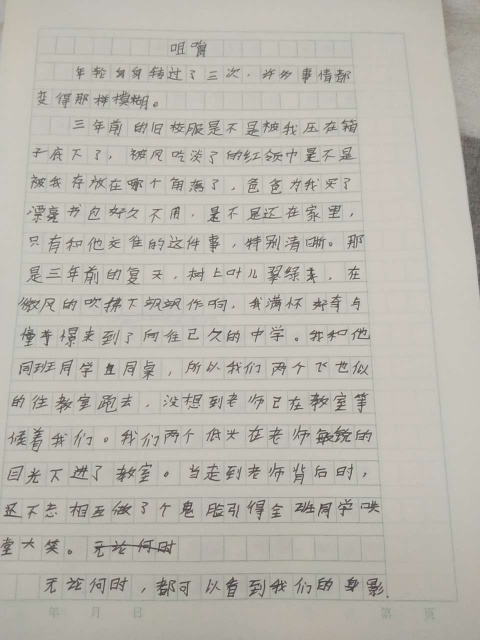 咀嚼
年轮匆匆转过了三次，许多事情都
变得那样模糊。
三年前的旧校服是不是被我压在箱
子底下了，被风吹淡了的红领巾是不是
被我存放在哪个角落了，爸爸为我买了
漂亮书包好久不用，是不是还在家里，
只有和他交往的这件事，特别清晰。那
是三年前的夏天，树上叶儿翠绿，在
微风的吹拂下飒飒作响，我满怀好奇与
憧憬来到了向往已久的中学。我和他
同班同学且同桌，所以我们两个飞也似
的往教室跑去，没想到老师已在教室等
候着我们。我们两个低头在老师敏锐的
目光下进了教室。当走到老师背后时，
还不忘相互做了个鬼脸引得全班同学哄
堂大笑。无论何时
无论何时，都可以看到我们的身影.
年 月 日 第 页